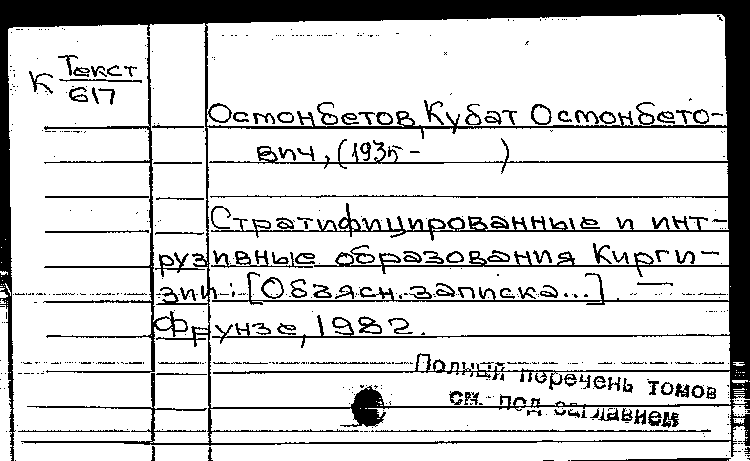 К Текст
617
Осмонбетов, Кубат Осмонбето-
вич, (1935- )
Стратифицированные и инт-
рузивные образования Кирги-
зии: [Объясн. записка...]. —
Фрунзе, 1982.
Полный перечень томов
см. под заглавием